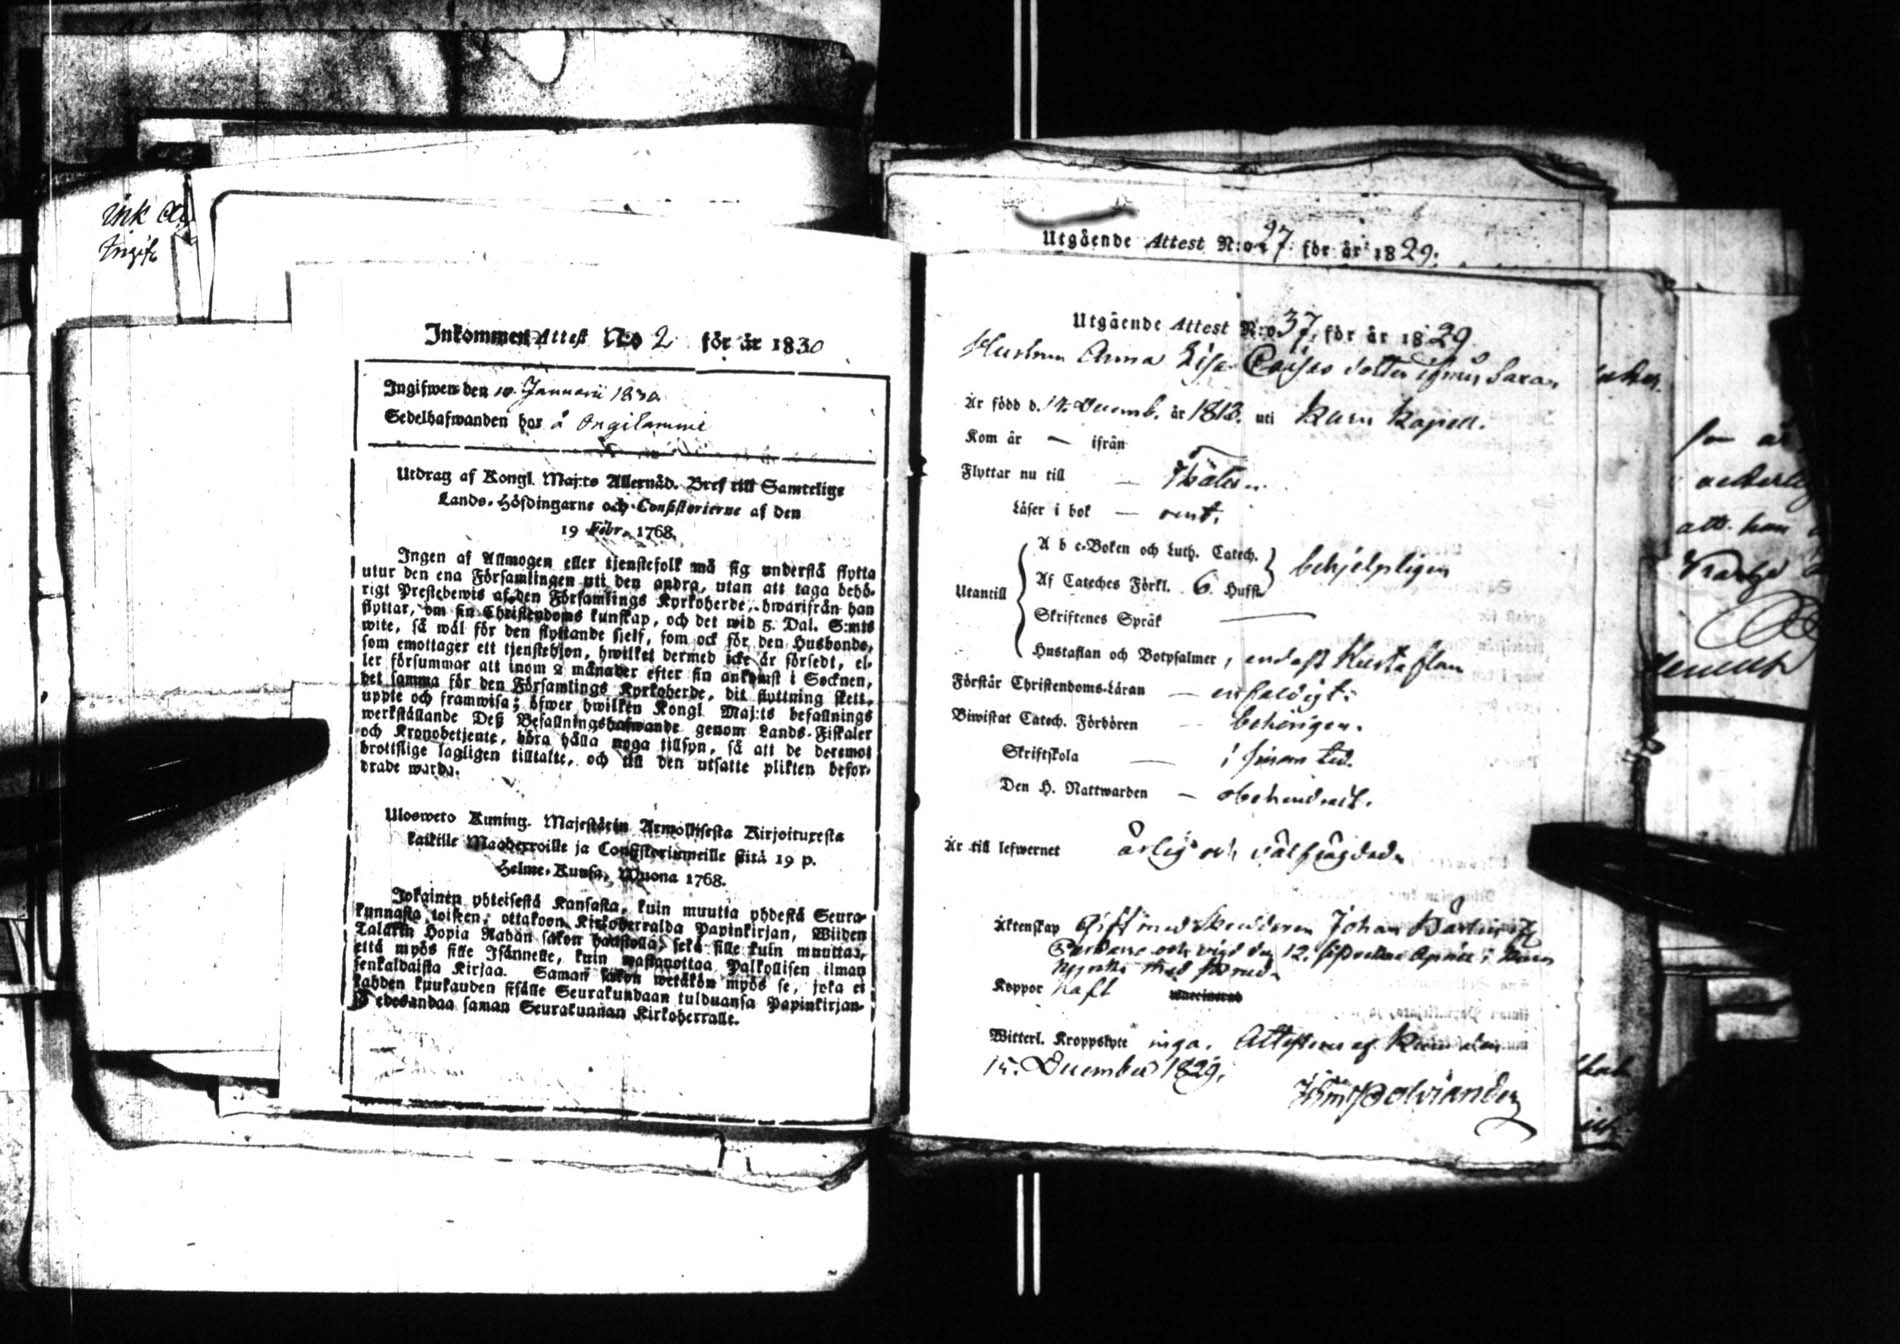 ink
Ingifv
Inkommen Attest No 2 för år 1830
Ingifwen den 10. Januarii 1830
Sedelhafwanden bor å Ongilammi
Utdrag af Kongl. Maj:ts Allernåd. Bref till Samtelige
Lands-Höfdingarne och Consistorierne af den
19 Febr. 1768.
Ingen af Allmogen eller tjenstefolk må sig understå flytta
utur den ena Församlingen uti den andra, utan att taga behö-
rigt Prestebewis af den Församlings Kyrkoherde, hwarifrån han
flyttar, om sin Christendoms kunskap, och det wid 5. Dal. S:mts
wite, så wäl för den flyttande sjelf, som ock för den Husbonde,
som emottager ett tjenstehjon, hwilket dermed icke är försedt, el-
ler försummar att inom 2 månader efter sin ankomst i Socknen,
det samma för den Församlings Kyrkoherde, dit flyttning skett,
uppte och framwisa; öfwer hwilken Kongl. Maj:ts befallnings
werkställande Deß Befallningshafwande genom Lands-Fiskaler
och Kronobetjente, böra hålla noga tillsyn, så att de deremot
brottslige lagligen tilltalte, och till den utsatte plikten befor-
drade warda.
Ulosweto Kuning. Majestätin Armollisesta Kirjoituxesta
kaikille Maaherroille ja Consistoriumeille siitä 19 p.
Helme-Kuusa, Wuona 1768.
Jokainen yhteisestä Kansasta, kuin muutta yhdestä Seura-
kunnasta toiseen, ottakoon Kirkoherralda Papinkirjan, Wiiden
Talarin Hopia Rahan sakon haastolla, sekä sille kuin muuttaa,
että myös sille Isännelle, kuin wastanottaa Palkollisen ilman
senkaldaista Kirjaa. Saman sakon wetäkön myös se, joka ei
kahden kuukauden sisälle Seurakundaan tulduansa Papinkirjan-
sa edesandaa saman Seurakunnan Kirkoherralle.
Utgående Attest N:o 27. för år 1829.
Utgående Attest N:o 37, för år 1829
Hustrun Anna Lisa Caisas dotter ifrån
Är född d. 14. Decemb. år 1812. uti Karu Kapell.
Kom år — ifrån
Flyttar nu till —
Läser i bok — rent.
Utantill
A b c-Boken och Luth. Catech.
Af Cateches Förkl. 6 Hufst. behjelpligen
Skriftenes Språk —
Hustaflan och Botpsalmer, endast Hustaflan
Förstår Christendoms-Läran — enfaldigt.
Biwistat Catech. Förhören — behörigen.
Skriftskola — i sinom tid.
Den H. Nattwarden — obehindradt.
Är till lefwernet ärlig och välfrägdad.
Äktenskap Gift med Skräddaren Johan
och vigd den 12. sistvekne April i Karu
Koppor haft
Witterl. Kroppslyte inga. Attesteras af Karu den
15. December 1829.